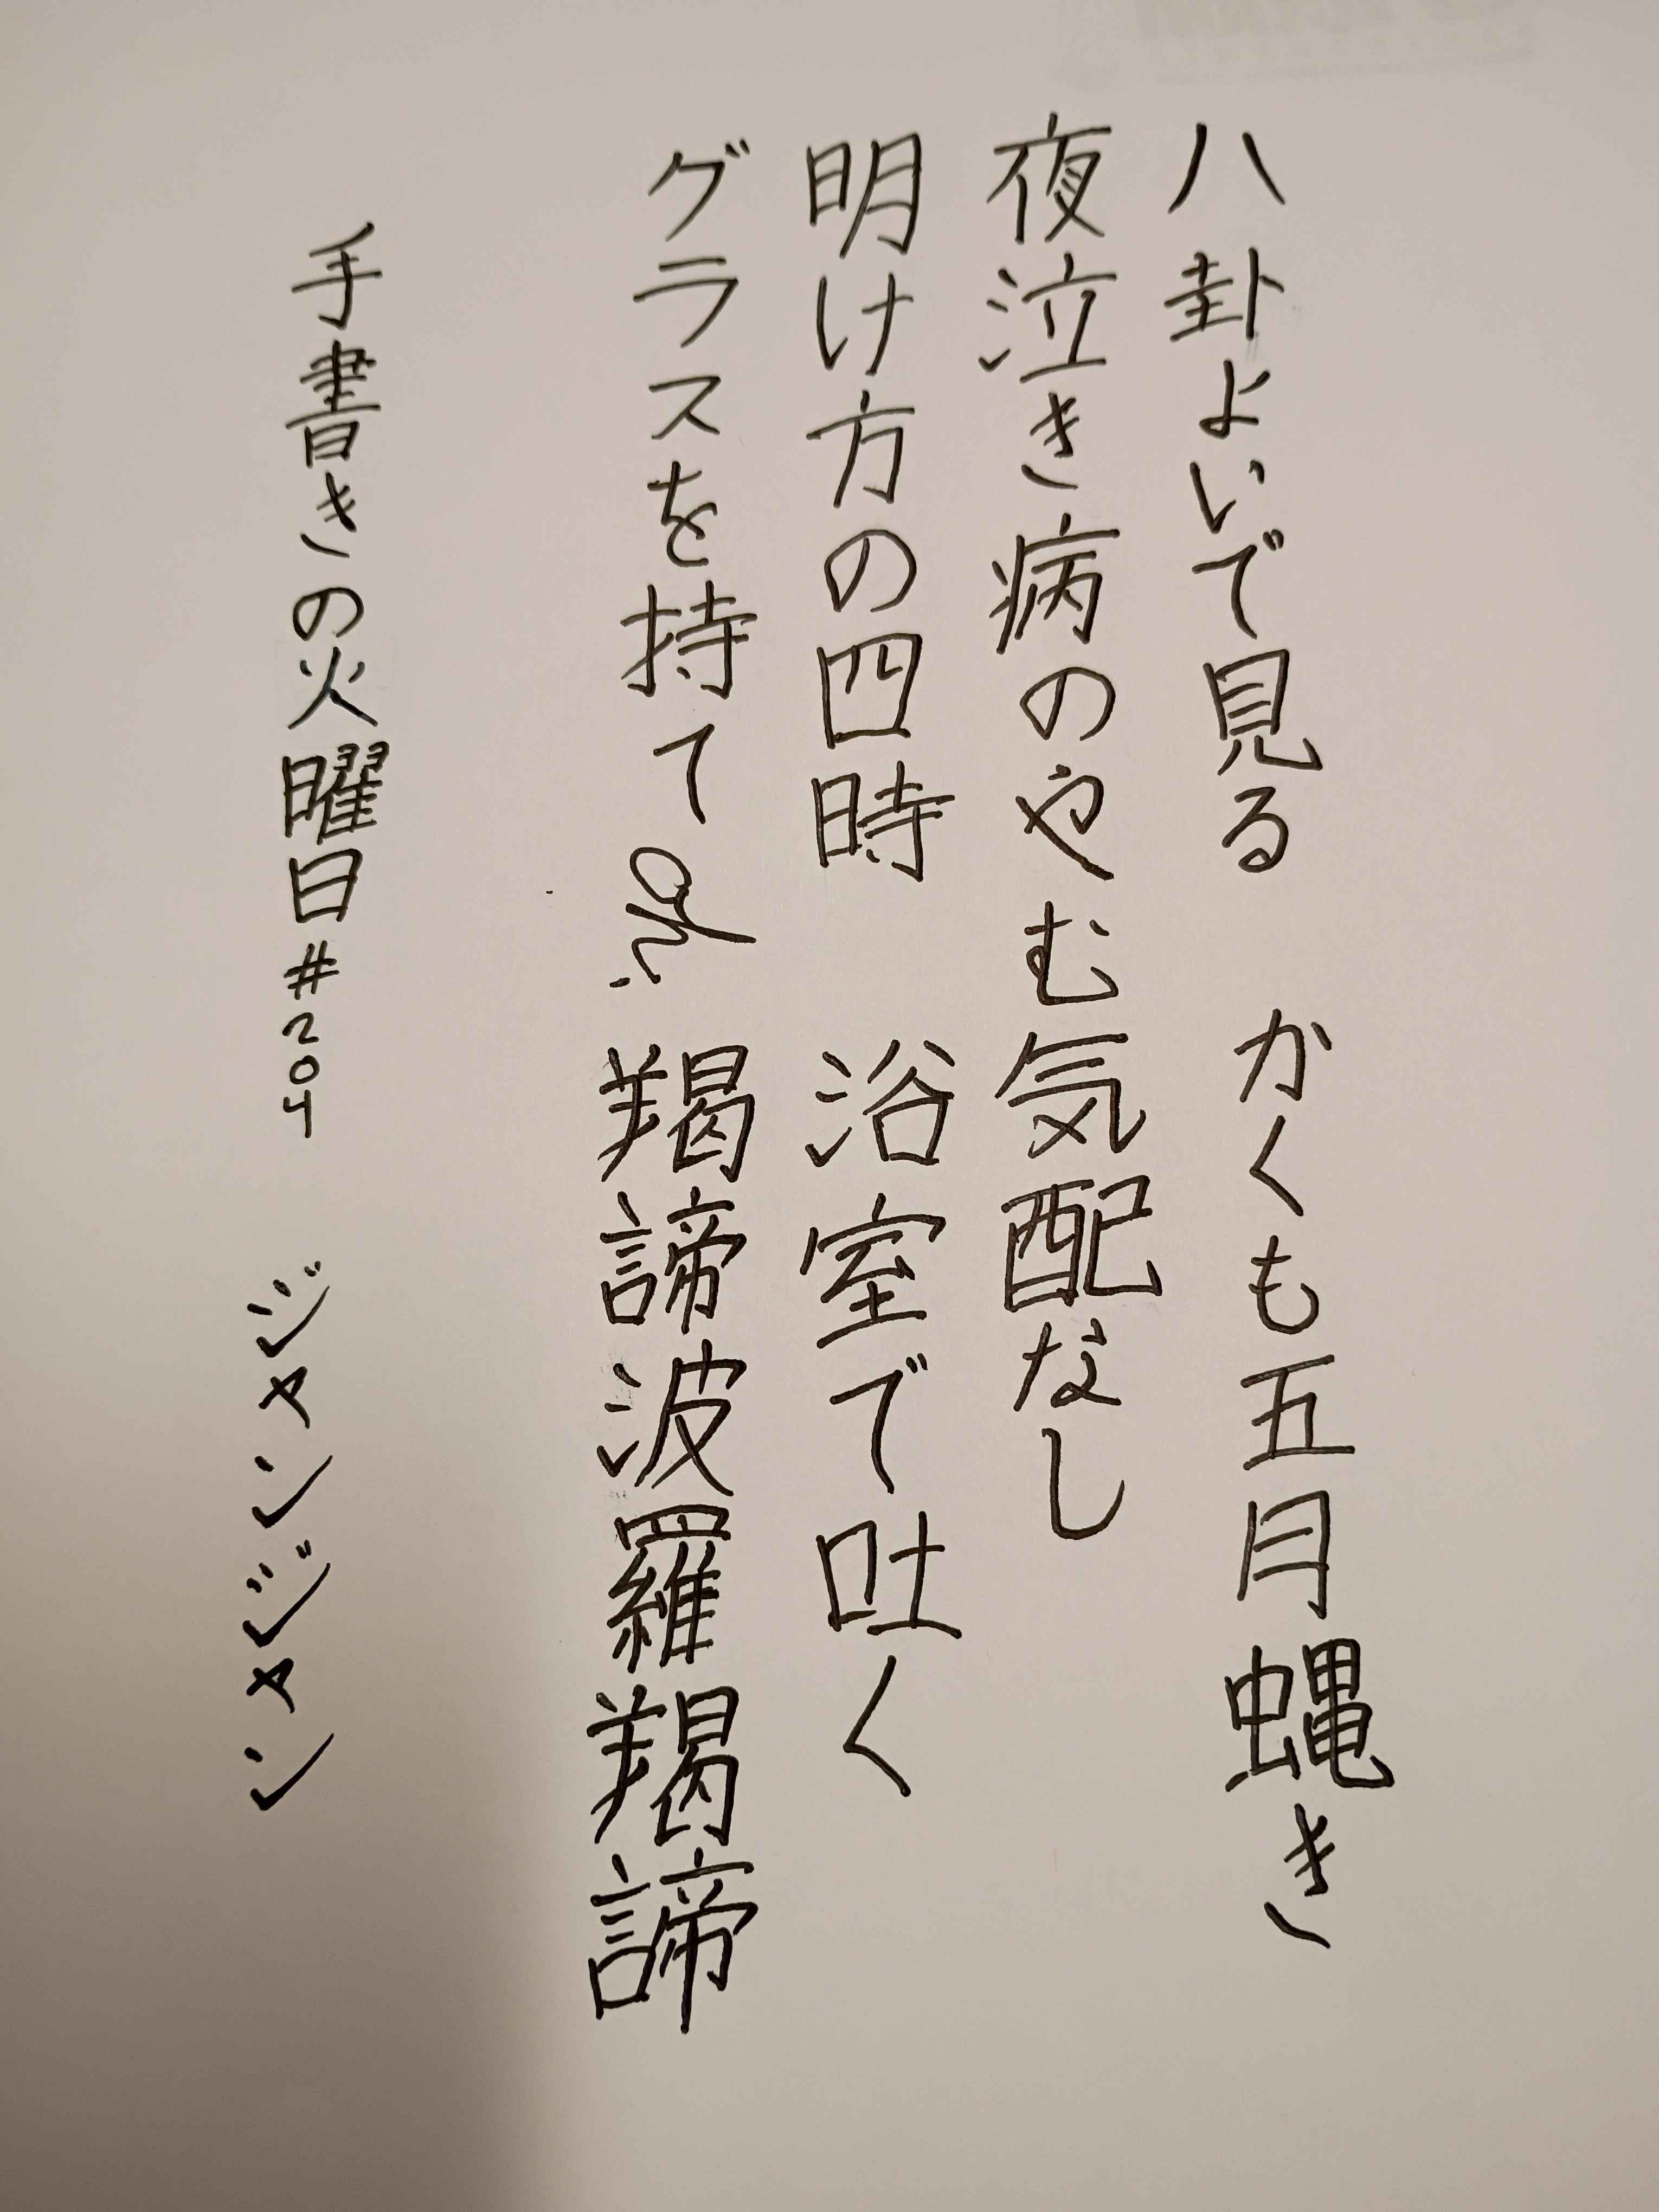 八卦よいで見る　かくも五月蝿き
夜泣き病のやむ気配なし
明け方の四時　浴室で吐く
グラスを持て　羯諦波羅羯諦
手書きの火曜日#204　ジャンジャン